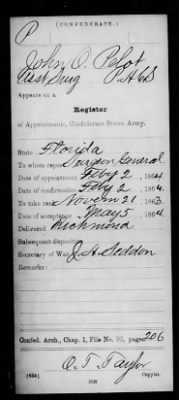 (CONFEDERATE.)
P
John O. Pelot
Asst Surg P.A.C.S.
Appears on a
Register
of Appointments, Confederate States Army.
State Florida
To whom report Surgeon General
Date of appointment Feby 2, 1864
Date of confirmation Feby 2, 1864.
To take rank Novem 21, 1863
Date of acceptance May 5, 1864
Delivered Richmond
Subsequent disposition
Secretary of War J. A. Seddon
Remarks:
Confed. Arch., Chap. 1, File No. 93, page 206
O. T. Taylor
Copyist.